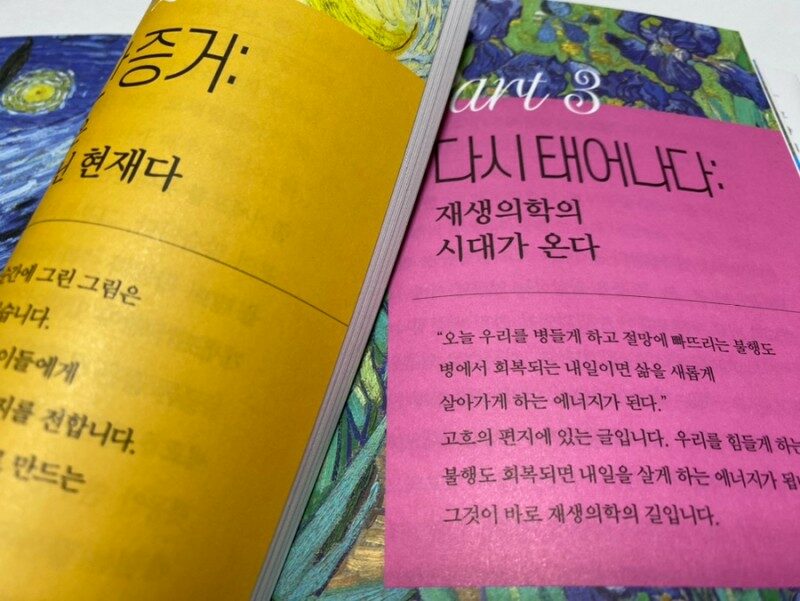 증거:
현재다
그린 그림은
습니다.
이들에게
전합니다.
만드는
art 3
다시 태어나다:
재생의학의
시대가 온다
“오늘 우리를 병들게 하고 절망에 빠뜨리는 불행도
병에서 회복되는 내일이면 삶을 새롭게
살아가게 하는 에너지가 된다.”
고흐의 편지에 있는 글입니다. 우리를 힘들게 하는
불행도 회복되면 내일을 살게 하는 에너지가
그것이 바로 재생의학의 길입니다.